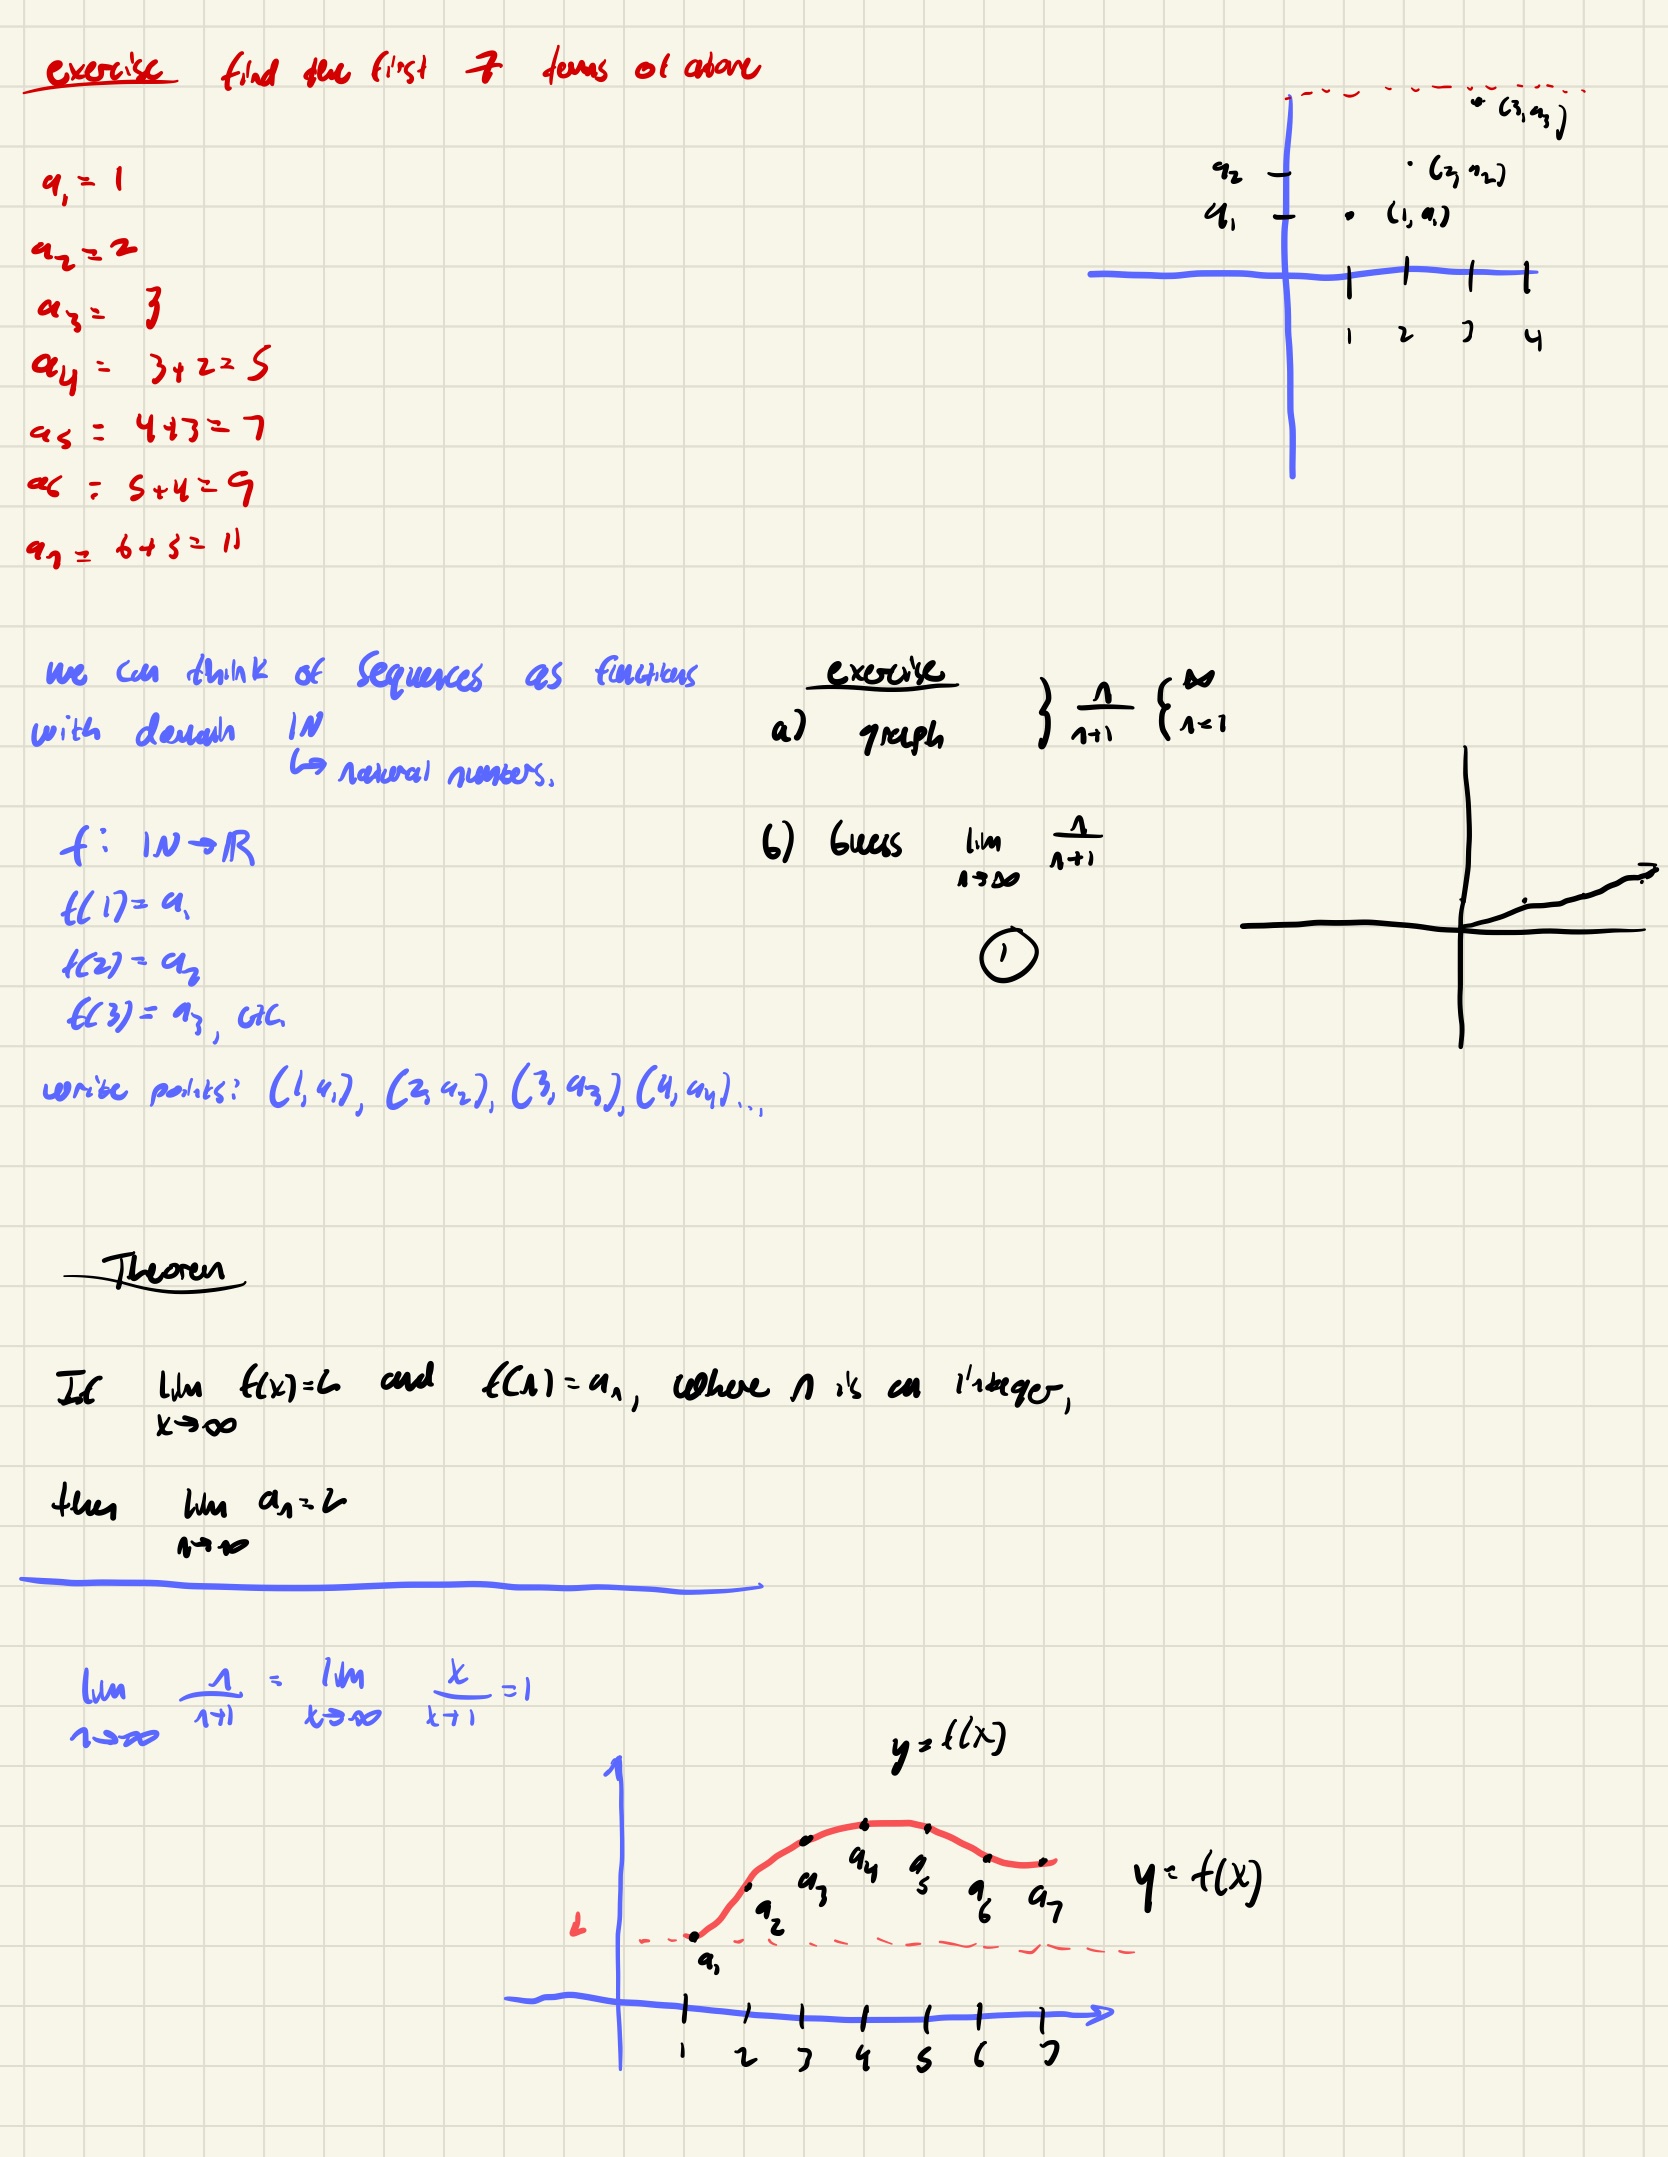 exercise find the first 7 terms of above
a₁ = 1
a₂ = 2
a₃ = 3
a₄ = 3+2=5
a₅ = 4+3=7
a₆ = 5+4=9
a₇ = 6+5=11
(3, a₃)
a₂ (2, a₂)
a₁ (1, a₁)
1 2 3 4
we can think of sequences as functions
with domain ℕ
↳ natural numbers.
f: ℕ→ℝ
f(1)= a₁
f(2)= a₂
f(3)= a₃, etc.
write points: (1, a₁), (2, a₂), (3, a₃), (4, a₄)...,
exercise
a) graph } n/(n+1) { ∞ n=1
b) Guess lim n→∞ n/(n+1)
1
Theorem
If lim x→∞ f(x)=L and f(n)=aₙ, where n is an integer,
then lim n→∞ aₙ=L
lim n→∞ n/(n+1) = lim x→∞ x/(x+1) =1
y=f(x)
a₁ a₂ a₃ a₄ a₅ a₆ a₇
y=f(x)
L
1 2 3 4 5 6 7